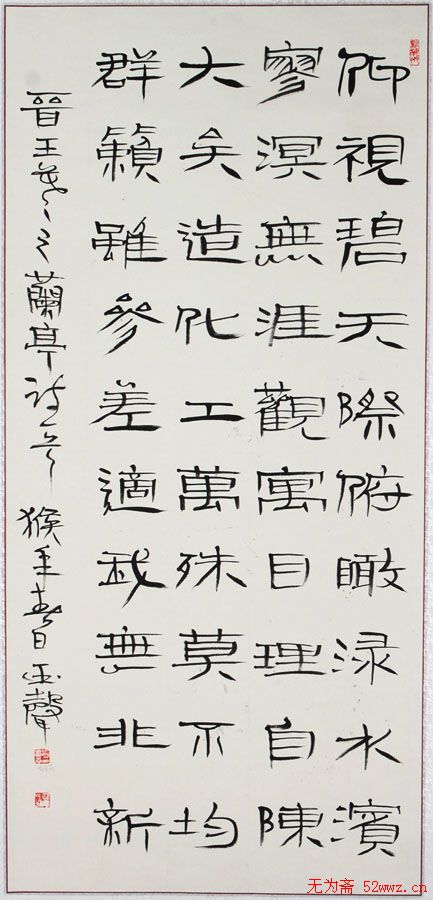 仰視碧天際俯瞰渌水濱
寥溟無涯觀寓目理自陳
大矣造化工萬殊莫不均
群籟雖參差適我無非新
晉王羲之蘭亭詩一首 猴年春日玉聲
无为斋 52wwz.cn